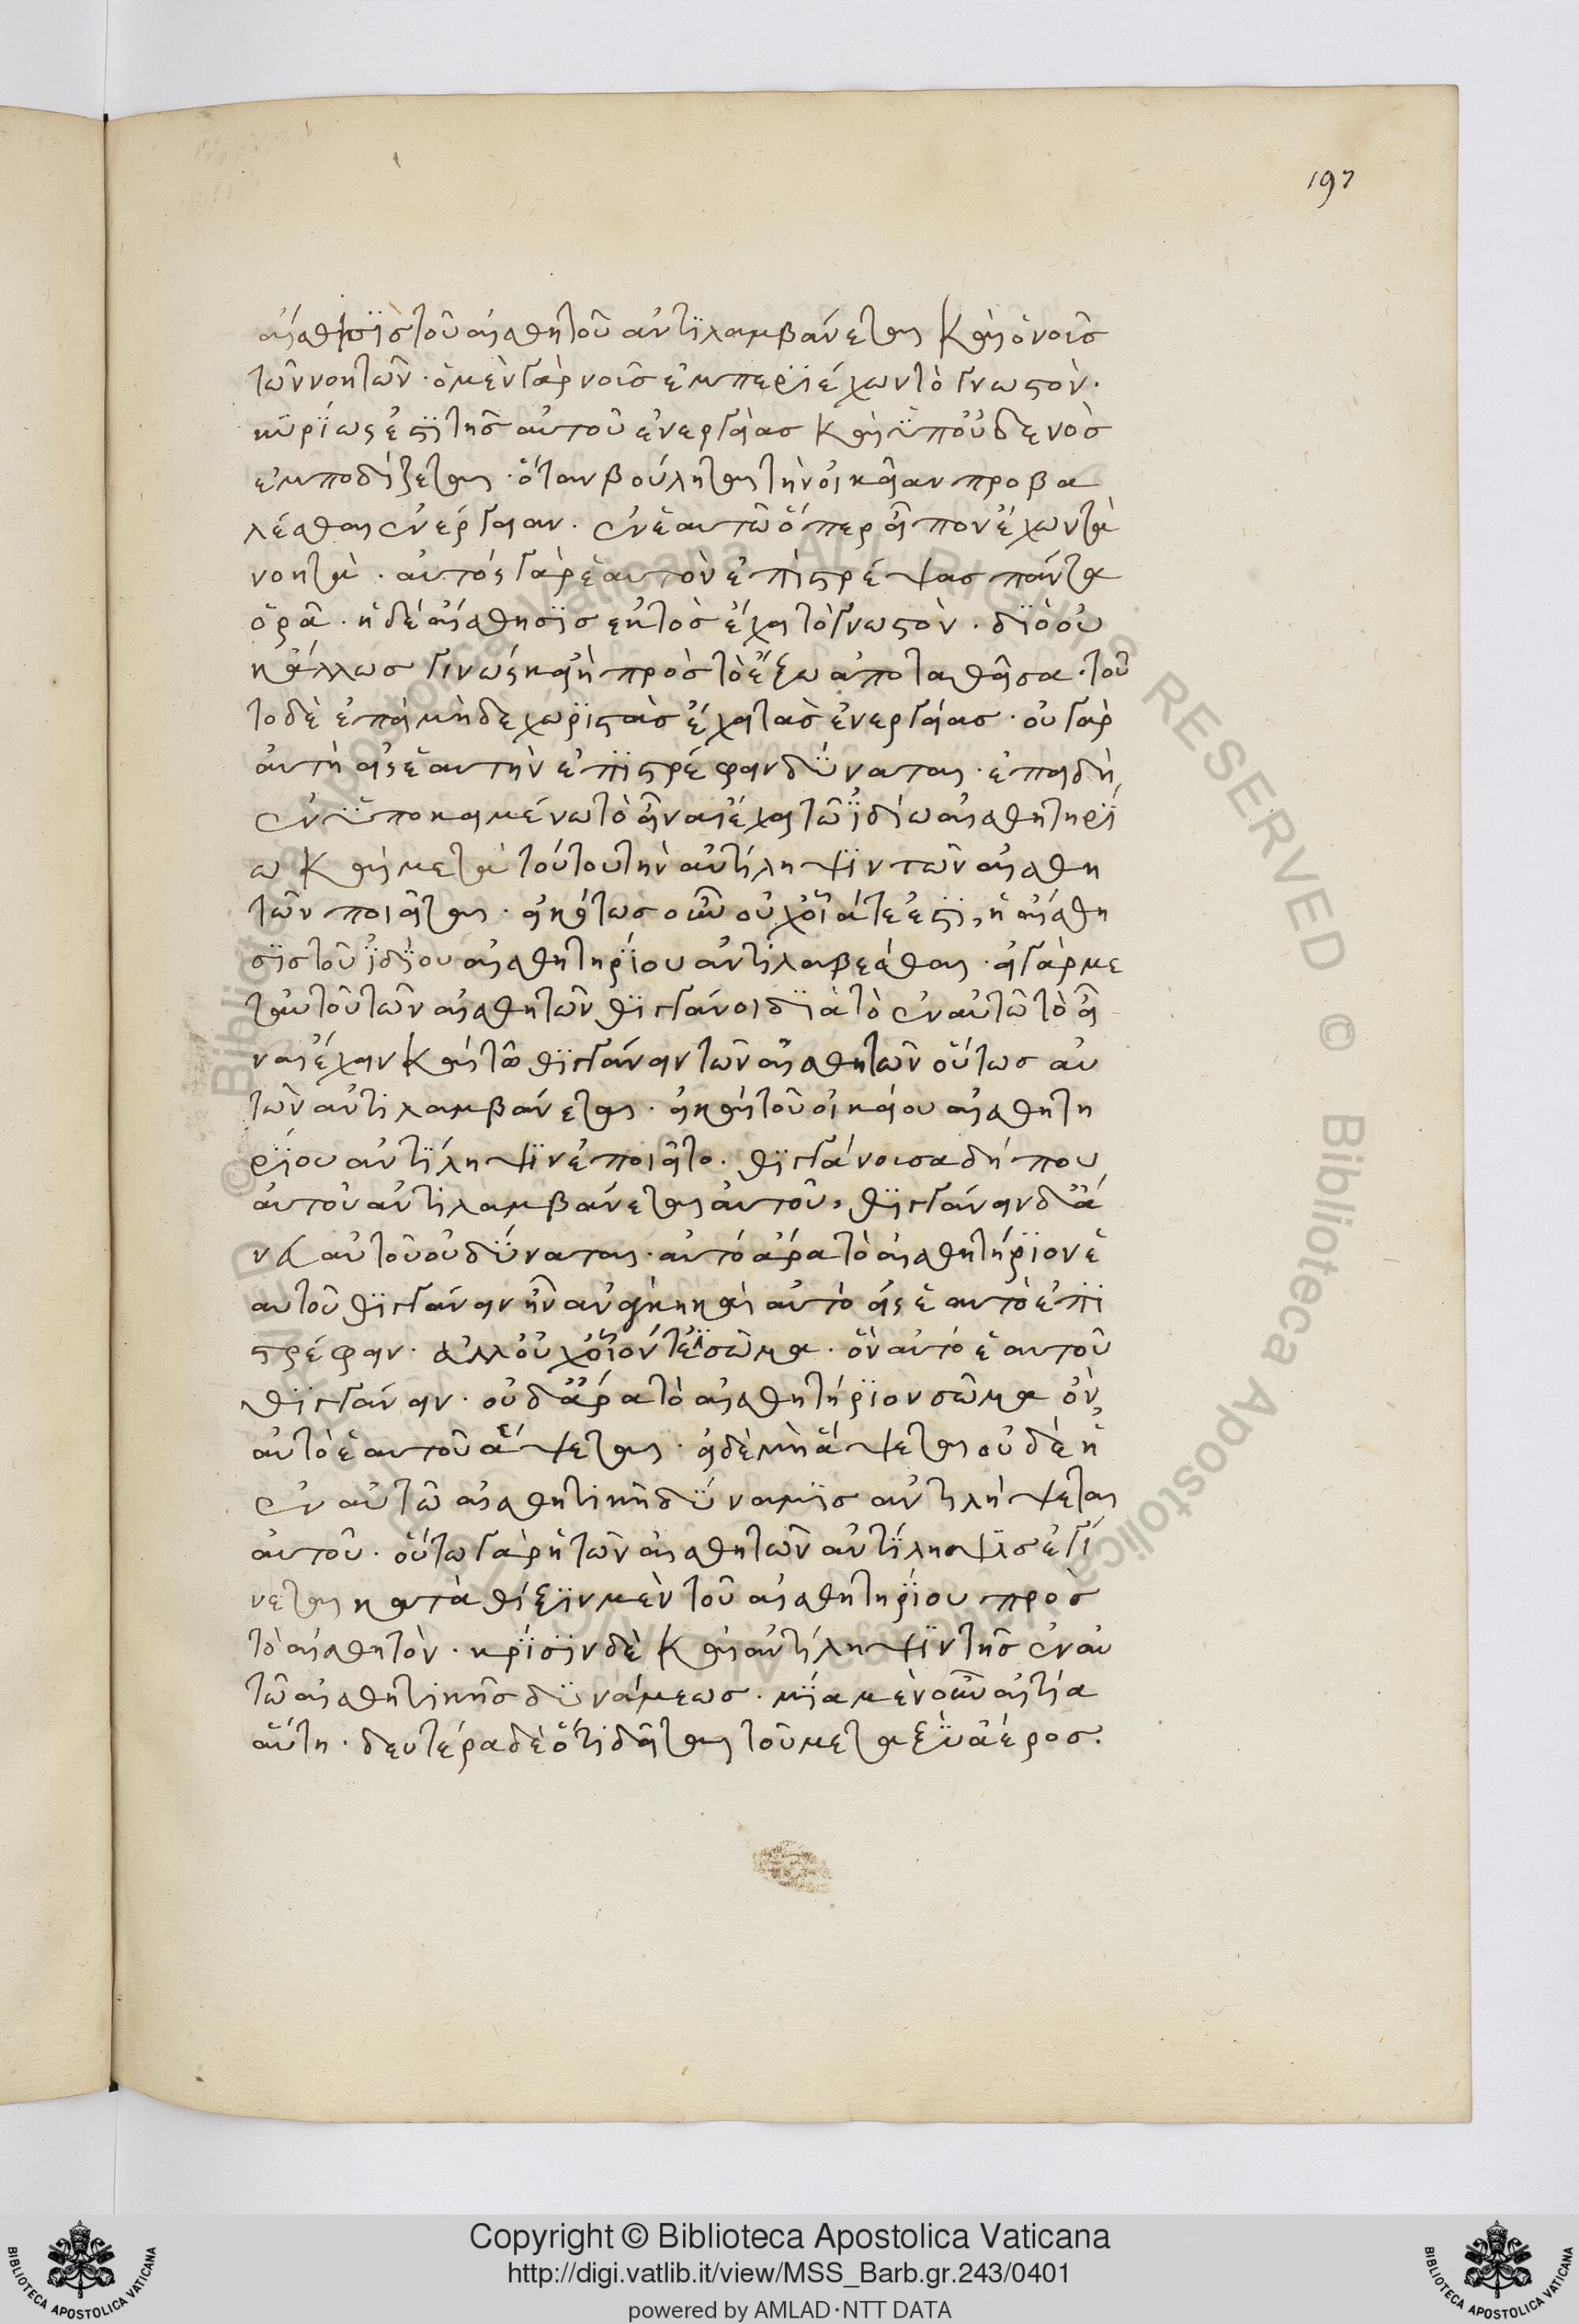 197
αἴσθησϊς τοῦ αἰσθητοῦ ἀντϊλαμβάνεται καὶ ὁ νοῦς
τῶν νοητῶν · ὁ μὲν γὰρ νοῦς ἐμπερϊέχων τὸ γνωστὸν ·
κϋρίως ἐστὶ τῆς αὐτοῦ ἐνεργείας καὶ ϋπ' οὐδενὸς
ἐμποδίζεται · ὅταν βούληται τὴν οἰκείαν προβα
λέσθαι ἐνέργειαν · ἐν ἑαυτῶ ὅπερ εἶπον ἔχων τὰ
νοητὰ · αὐτὸς γὰρ ἑαυτὸν ἐπιστρέψας πάντα
ὁρᾶ · ἡ δὲ αἴσθησϊς ἐκτὸς ἔχει τὸ γνωστὸν · δϊὸ οὐ
κ ἄλλως γινώσκει ἢ πρὸς τὸ ἔξω ἀποταθεῖσα · τοῦ
το δὲ ἐπεὶ μὴ δὲ χωρϊστὰς ἔχει τὰς ἐνεργείας · οὐ γὰρ
αὐτὴ εἰς ἑαυτὴν ἐπϊστρέφειν δϋναται · ἐπειδὴ
ἐν ϋποκειμένω τὸ εἶναι ἔχει τῶ ϊδίω αἰσθητηρί
ω καὶ μετὰ τούτου τὴν ἀντίληψϊν τῶν αἰσθη
τῶν ποιεῖται · εἰκότως οὖν οὐχ οἵα τε ἐστὶ, ἡ αἴσθη
σϊς τοῦ ϊδίου αἰσθητηρίου ἀντιλαβέσθαι · εἰ γὰρ με
τ' αὐτοῦ τῶν αἰσθητῶν θϊγγάνοι δϊὰ τὸ ἐν αὐτῶ τὸ εἶ
ναι ἔχειν καὶ τῶ θϊγγάνειν τῶν αἰσθητῶν οὕτως αὐ
τῶν ἀντιλαμβάνεται · εἰ καὶ τοῦ οἰκείου αἰσθητη
ρίου ἀντίληψϊν ἐποιεῖτο · θϊγγάνουσα δή που
αὐτοῦ ἀντιλαμβάνεται αὐτοῦ, θϊγγάνειν δ' ἄ
νευ αὐτοῦ οὐ δϋναται · αὐτὸ ἄρα τὸ αἰσθητήριον ἑ
αυτοῦ θϊγγάνειν ἦν ἀνάγκη καὶ αὐτὸ εἰς ἑαυτὸ ἐπϊ
στρέφειν · ἀλλ' οὐχ οἷόν τέ σῶμα · ὂν αὐτὸ ἑαυτοῦ
θϊγγάνειν · οὐδ' ἄρα τὸ αἰσθητήριον σῶμα ὂν,
αὐτὸ ἑαυτοῦ ἅψεται · εἰ δὲ μὴ ἅψεται οὐδὲ ἡ
ἐν αὐτῶ αἰσθητικὴ δϋναμϊς ἀντιλήψεται
αὐτοῦ · οὕτω γὰρ ἡ τῶν αἰσθητῶν ἀντίληψϊς ἐγί
νεται κατὰ θίξϊν μὲν τοῦ αἰσθητηρίου πρὸς
τὸ αἰσθητὸν · κρίσϊν δὲ καὶ ἀντίληψϊν τῆς ἐν αὐ
τῶ αἰσθητικῆς δϋνάμεως · μία μὲν οὖν αἰτία
αὕτη · δευτέρα δὲ ὅτι δεῖται τοῦ μεταξϋ ἀέρος.
© Biblioteca Apostolica Vaticana ALL RIGHTS RESERVED
Copyright © Biblioteca Apostolica Vaticana
http://digi.vatlib.it/view/MSS_Barb.gr.243/0401
powered by AMLAD·NTT DATA
BIBLIOTECA APOSTOLICA VATICANA
BIBLIOTECA APOSTOLICA VATICANA